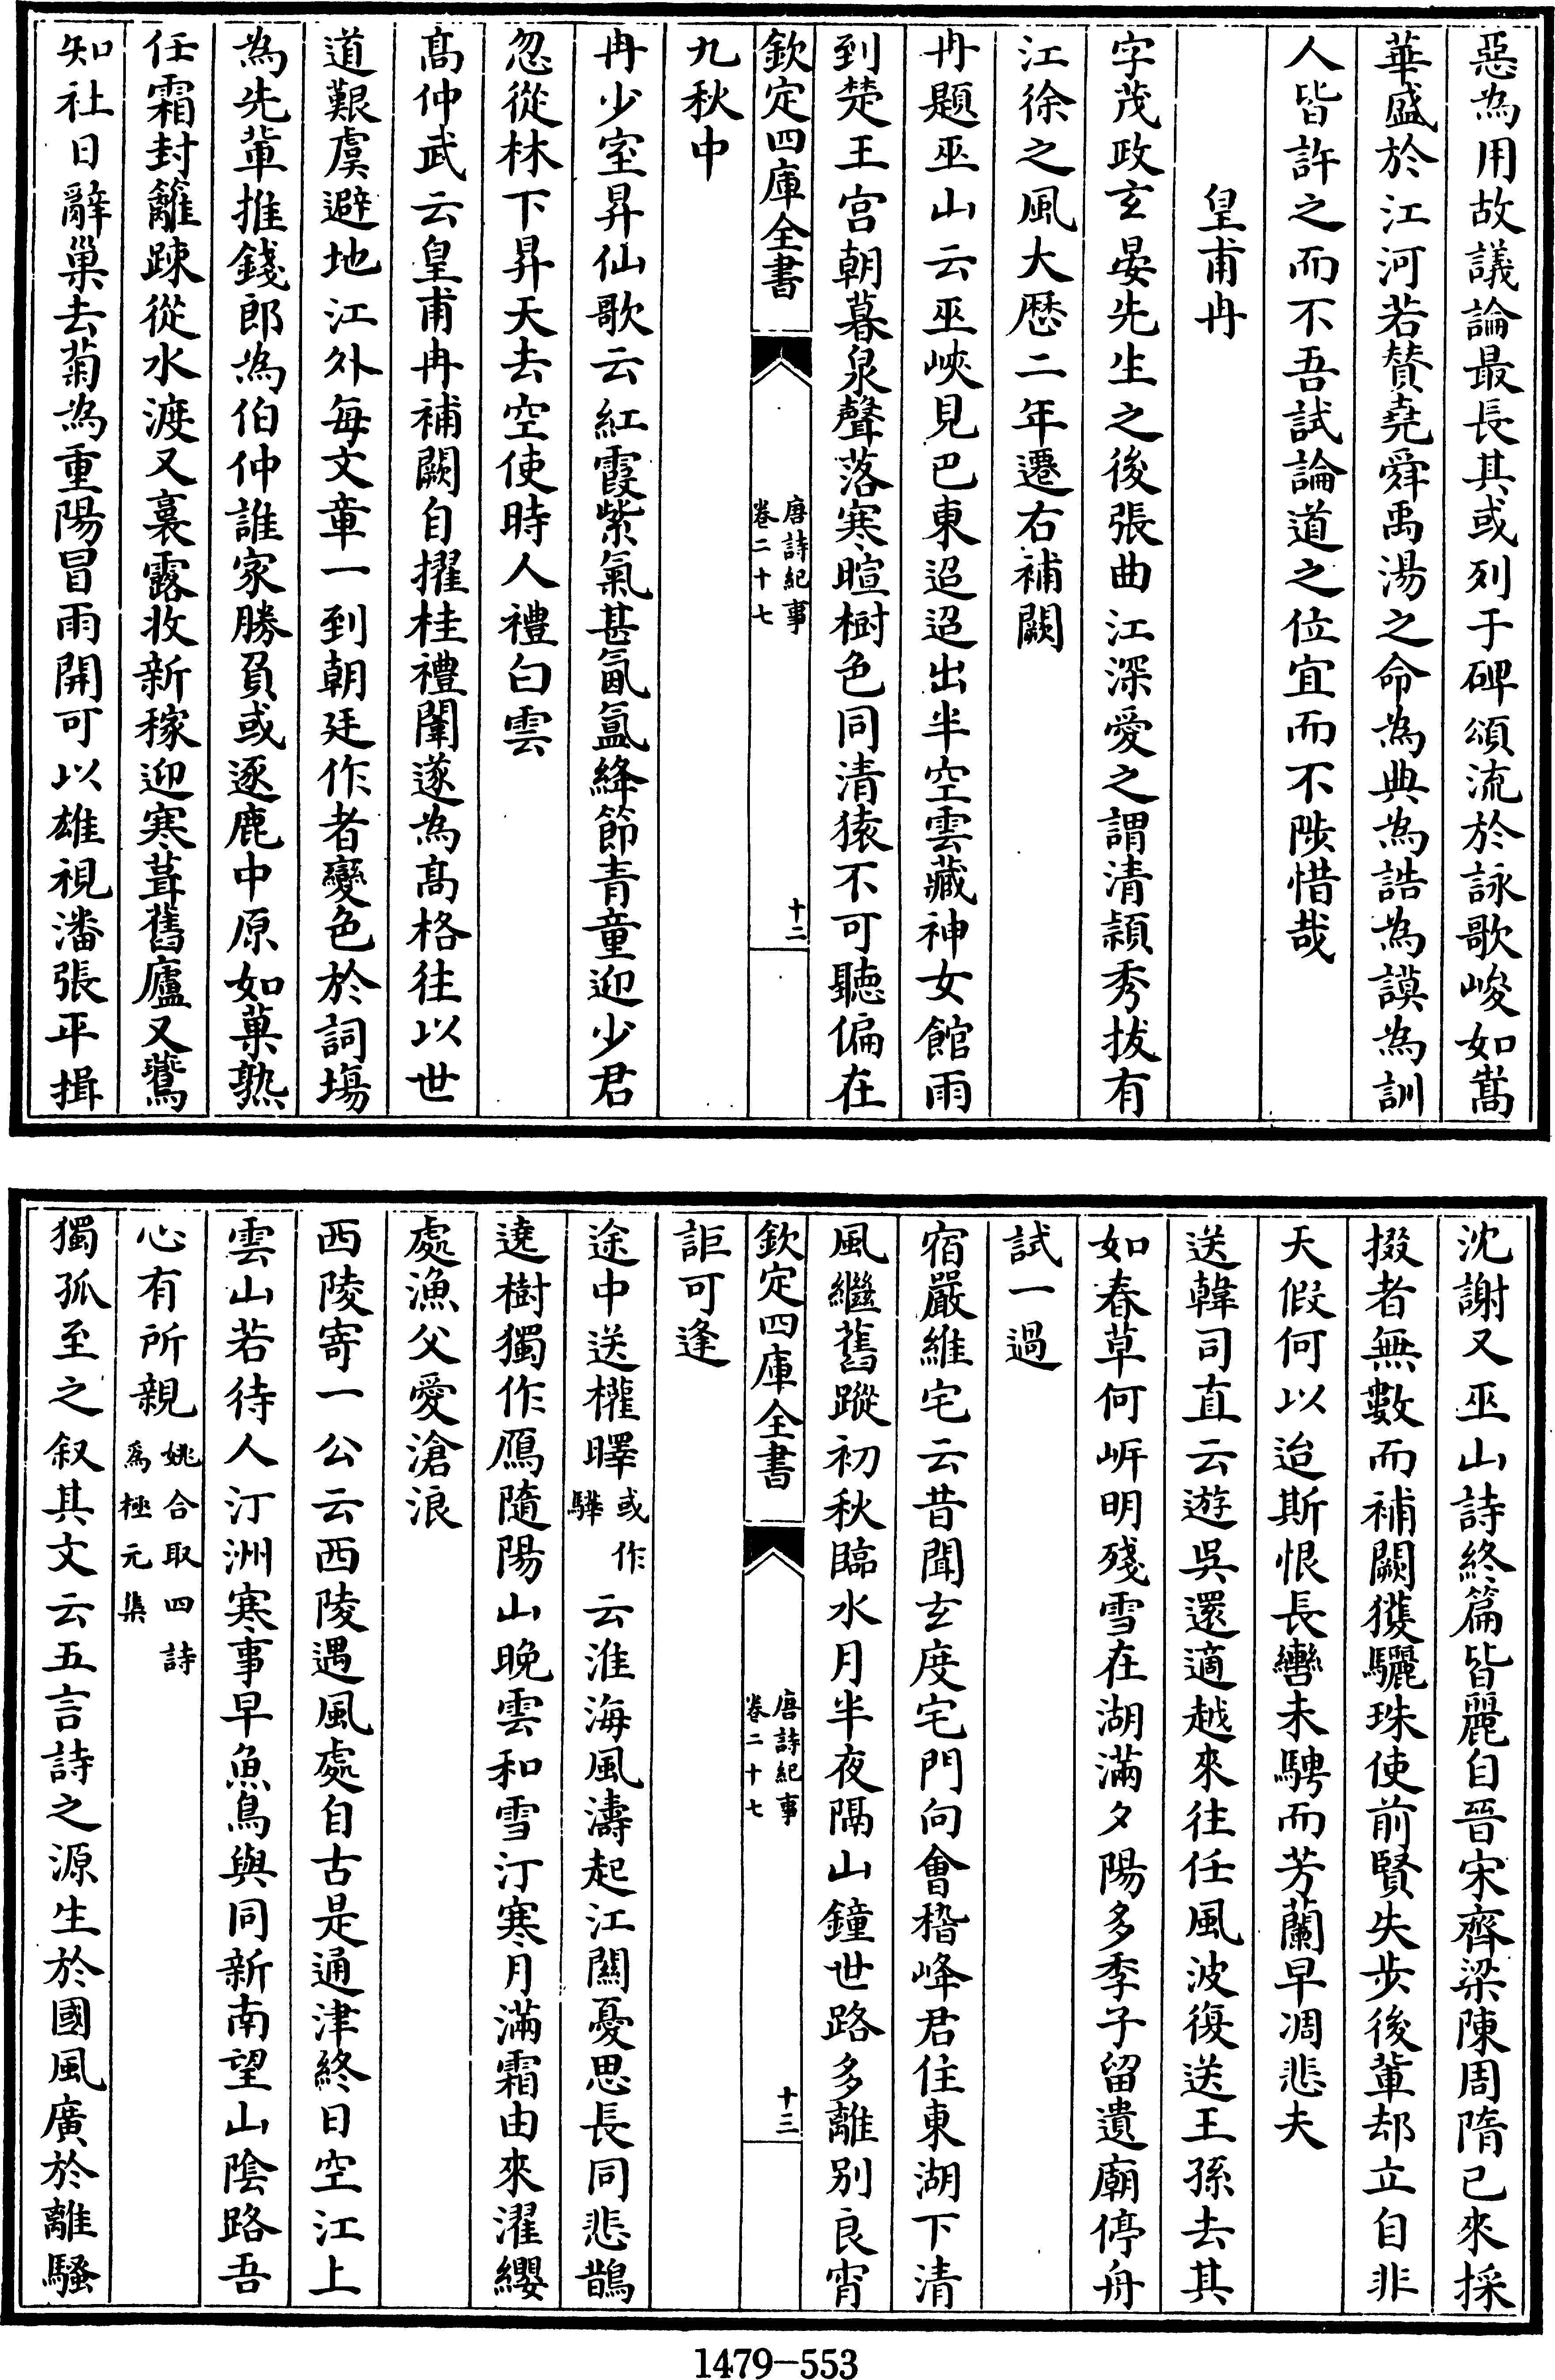 惡為用故議論最長其或列于碑頌流於詠歌峻如嵩
華盛於江河若贊堯舜禹湯之命為典為誥為謨為訓
人皆許之而不吾試論道之位宜而不陟惜哉
皇甫冉
字茂政玄晏先生之後張曲江深愛之謂清穎秀拔有
江徐之風大厯二年遷右補闕
冉題巫山云巫峽見巴東迢迢出半空雲藏神女館雨
到楚王宫朝暮泉聲落寒暄樹色同清猿不可聽偏在
欽定四庫全書
唐詩紀事
卷二十七
十二
九秋中
冉少室昇仙歌云紅霞紫氣甚氤氲絳節青童迎少君
忽從林下昇天去空使時人禮白雲
髙仲武云皇甫冉補闕自擢桂禮闈遂為髙格往以世
道艱虞避地江外每文章一到朝廷作者變色於詞塲
為先輩推錢郎為伯仲誰家勝負或逐鹿中原如菓熟
任霜封籬踈從水渡又裛露收新稼迎寒葺舊廬又鷰
知社日辭巢去菊為重陽冒雨開可以雄視潘張平揖
沈謝又巫山詩終篇皆麗自晉宋齊梁陳周隋已來採
掇者無數而補闕獲驪珠使前賢失步後輩却立自非
天假何以迨斯恨長轡未騁而芳蘭早凋悲夫
送韓司直云遊吳還適越來往任風波復送王孫去其
如春草何岍明殘雪在湖滿夕陽多季子留遺廟停舟
試一過
宿嚴維宅云昔聞玄度宅門向會稽峰君住東湖下清
風繼舊蹤初秋臨水月半夜隔山鐘世路多離别良宵
欽定四庫全書
唐詩紀事
卷二十七
十三
詎可逢
途中送權曎或作驊云淮海風濤起江關憂思長同悲鵲
遶樹獨作鴈隨陽山晚雲和雪汀寒月滿霜由來濯纓
處漁父愛滄浪
西陵寄一公云西陵遇風處自古是通津終日空江上
雲山若待人汀洲寒事早魚鳥與同新南望山隂路吾
心有所親姚合取四詩為極元集
獨孤至之叙其文云五言詩之源生於國風廣於離騷
1479-553